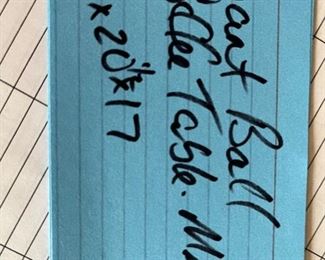 ant Ball
ffee Table. M
x 20½ x 17